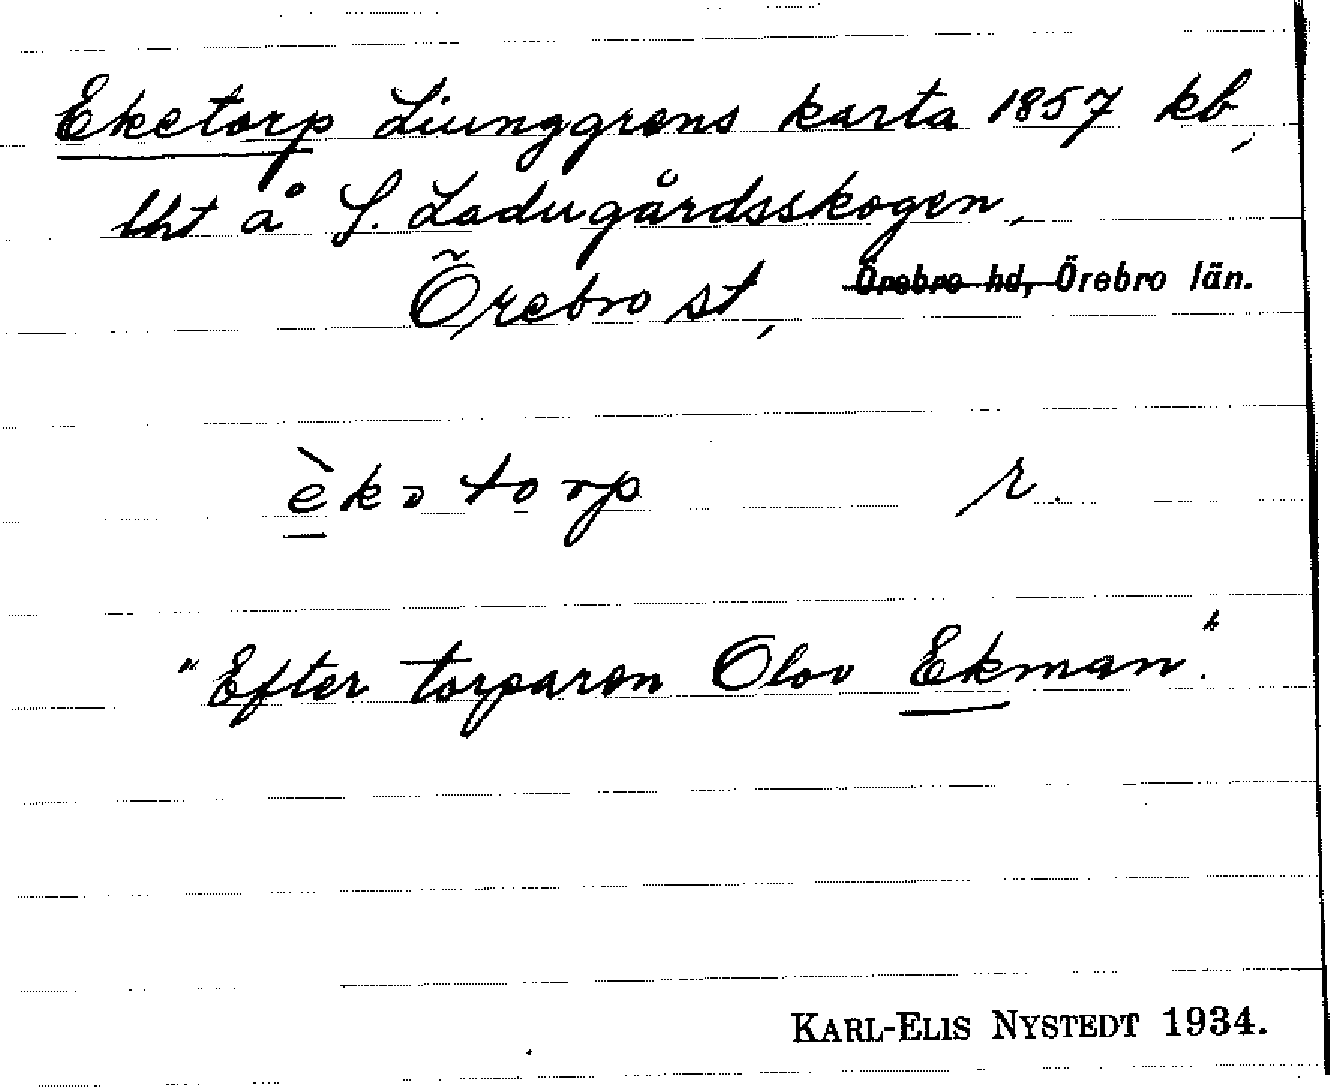 Eketorp Liunggrens karta 1857 kb,
lht å S. Ladugårdsskogen,
Örebro st, Örebro hd, Örebro län.
èkɔtorp r.
"Efter torparen Olov Ekman."
KARL-ELIS NYSTEDT 1934.